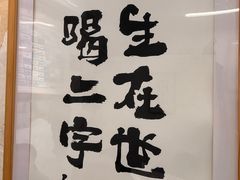 生在世
喝二字